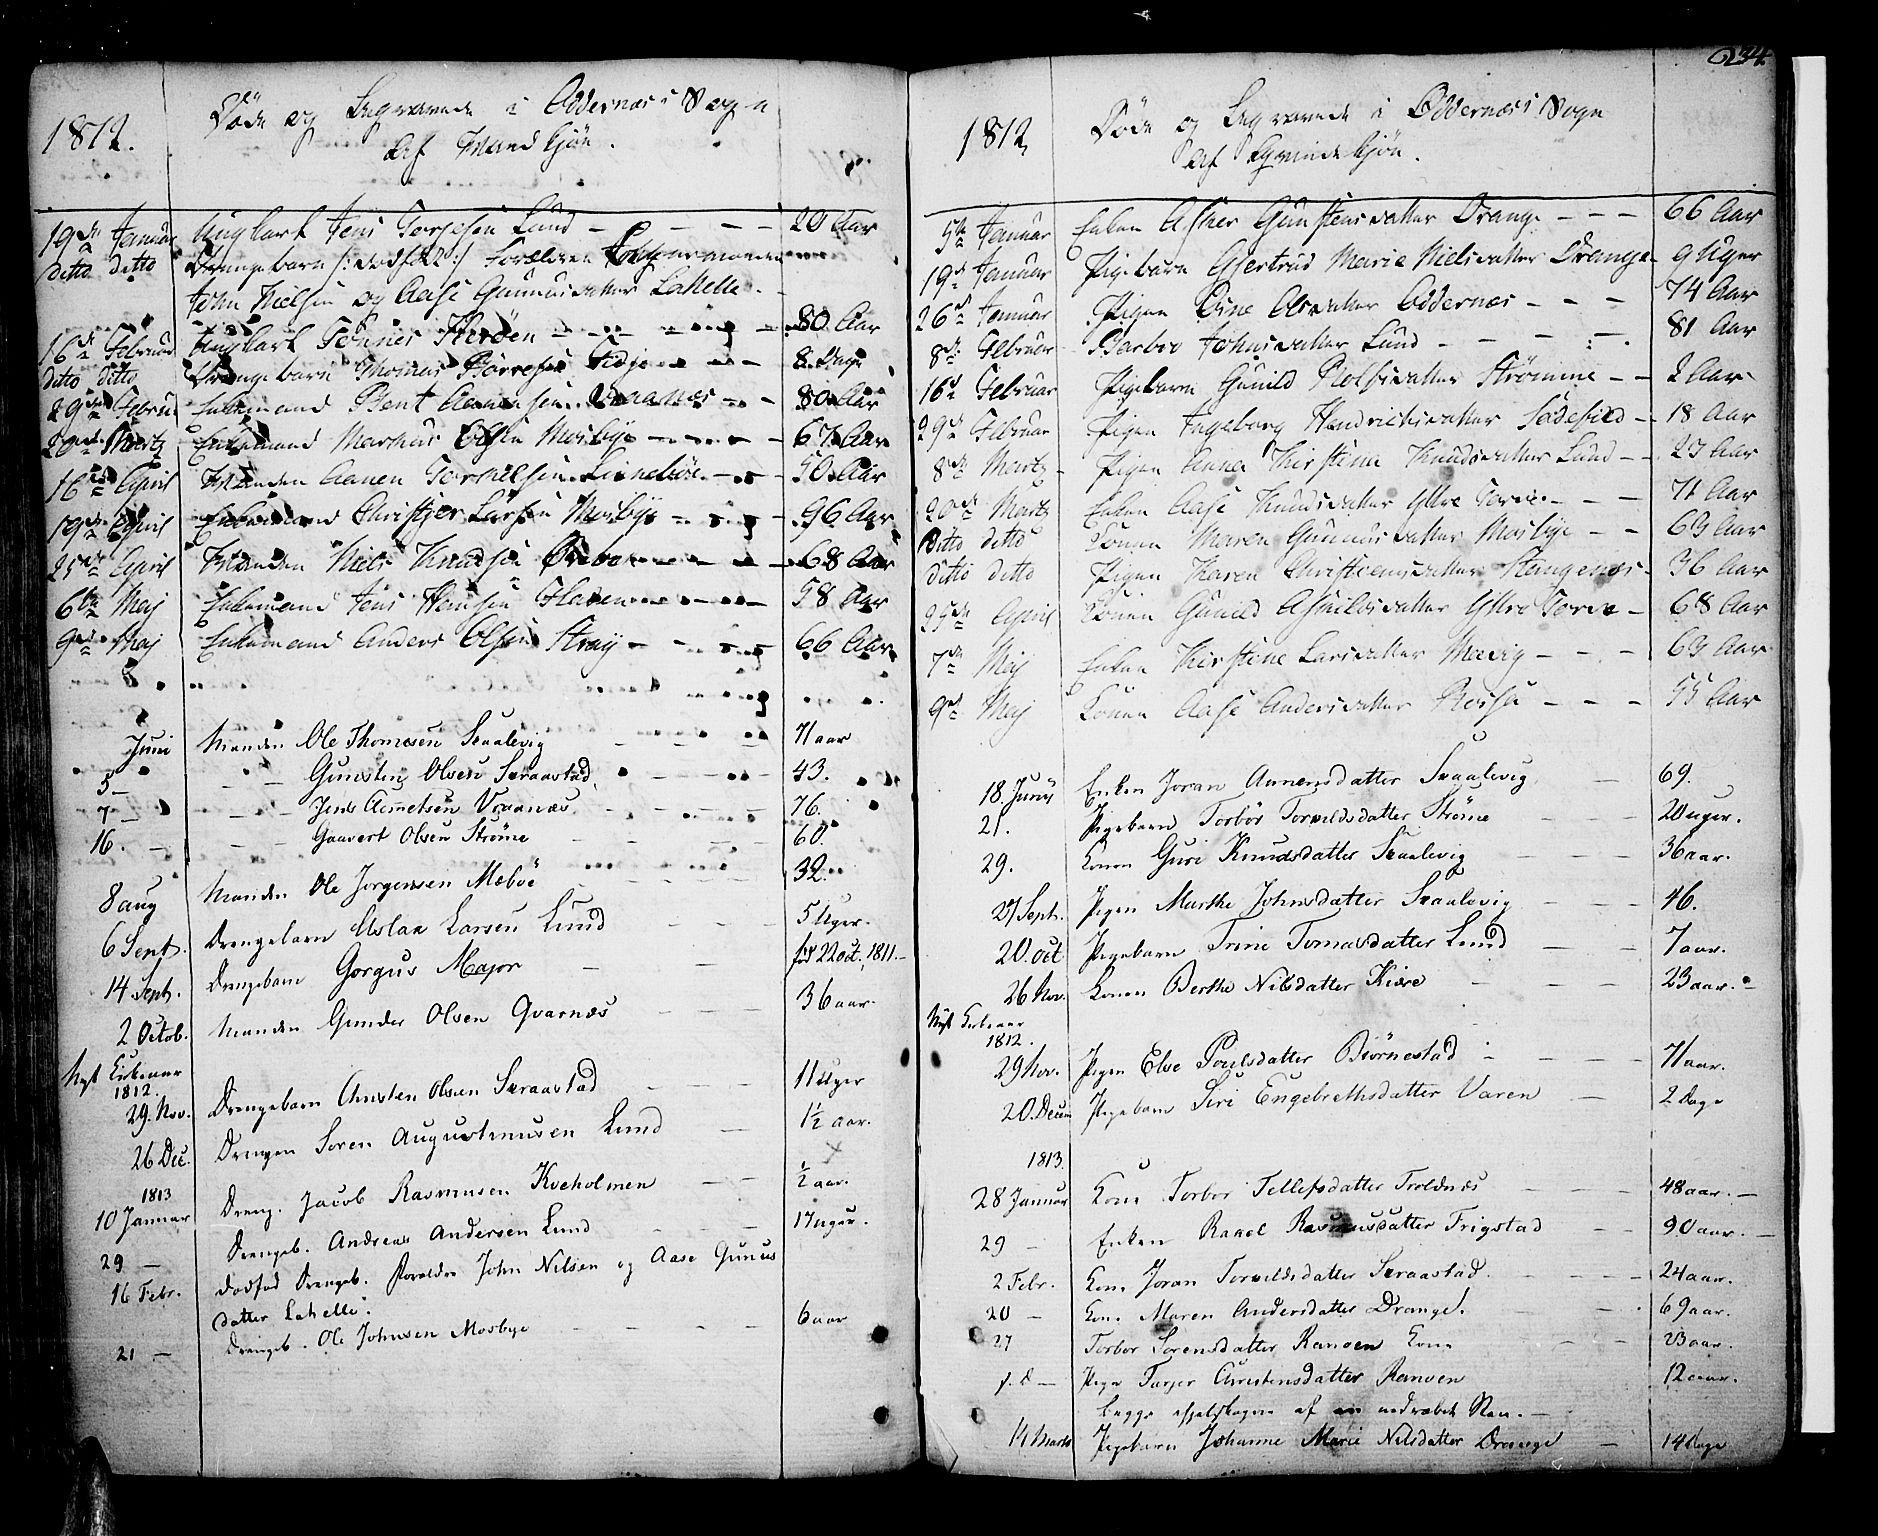 234.
1812. Døde og Begravede i Oddernæs Sogn
Af Mandkjøn.
19de Januar Ungkarl Jens Torjesen Lund - - - - 20 Aar
ditto ditto Drengebarn /: dødfød :/ Forældrene
John Nielsen og Aase Gunnusdatter Lahelle. -
16de Februar Ungkarl Tønnes - - - 80 Aar
ditto ditto Drengebarn Thomas Børresen - - 8 Dage
29de Februar Enkemand Bent Aanensen Vraanæs - - 80 Aar
20de Martz Enkemand Markus Olsen Mosbye - - - 67 Aar
16de April Manden Aanen Tarkelsen Linnebøe - - 50 Aar
19de April Enkemand Christopher Larsen Mosbye - - 96 Aar
25de April Manden Niels Knudsen - - - 68 Aar
6te Maj Enkemand Jens Hansen - - - 58 Aar
9de Maj Enkemand Anders Olsen Stray - - - 66 Aar
Juni Manden Ole Thomesen Skaalevig - - - 71 aar
5 - - - Gunsten Olsen Særaastad - - 43.
7 - - - Jens Asmelsen Vraanæs - - - 76.
16. - - - Gaavert Olsen Strøme - - - 60.
8 aug Manden Ole Jorgensen Mæbøe - - - 32.
6 Sept. Drengebarn Aslak Larsen Lund - - 5 Uger.
14 Sept. Drengebarn Gorgus Major - - fød 22 oct. 1811. -
2 Octob. Manden Gunder Olsen Qvarnæs - - - 36 aar.
Nyt Kirkeaar
1812.
29. Nov. Drengebarn Christen Olsen Særaastad - - - 11 Uger
26 Dec. Drengen Soren Augustinusen Lund - 1½ aar.
1813
10 Januar Dreng. Jacob Rasmusen Kveholmen - - ½ aar.
29 - Drengeb. Andreas Andersen Lund - - - 17 uger.
16 Febr. Dodfød Drengeb. Forældre John Nilsen og Aase Gunus
datter Lahelle.
21 - Drengeb. Ole Johnsen Mosbye - - - 6 aar
1812. Døde og Begravede i Oddernæs Sogn
Af Qvindekjøn.
5te Januar Enken Asher Gunstensdatter Drange - - - 66 Aar
19de Januar Pigebarn Gjertrud Marie Nielsdatter Drange - 9 Uger
26de Januar Pigen Olsdatter Oddernæs - - - 74 Aar
8de Februar Barbro Johnsdatter Lund - - - 81 Aar
16de Februar Pigebarn Gunild Rolfsdatter Strømme - - 2 Aar
29de Februar Pigen Ingeborg Hendrichsdatter - 18 Aar
8de Martz - Pigen Anna Kirstina Knudsdatter Lund - - 23 Aar
20de Martz Enken Aase Knudsdatter Ytre Torve - - - 71 Aar
Ditto ditto Konen Maren Gunnusdatter Mosbye - - 69 Aar
ditto ditto Pigen Karen Christensdatter Stangenæs - 36 Aar
25de April Konen Gunild Asfuldsdatter Ytre Torve - 68 Aar
7de Maj Enken Kirstine Larsdatter Mævig - - - 69 Aar
9de Maj Konen Aase Andersdatter Rossø - - - 55 Aar
18. Junij Enken Joran Aanensdatter Skaalevig - 69.
21. Pigebarn Torbør Torvildsdatter Strøme - - 20 uger.
29. Konen Guri Knudsdatter Skaalevig - - - 36 aar.
27 Sept. Pigen Marthe Johnsdatter Skaalevig - - - 46.
20. oct Pigebarn Trine Tomasdatter Lund - - 7 aar.
26 Nov. Konen Berthe Nilsdatter Kiære - - - 23 aar. -
Nyt Kirkeaar
1812.
29 Nov. Pigen Else Poulsdatter Biørnestad - - - 71 aar.
20. Decem Pigebarn Siri Engebrethsdatter Varen - 2 dage
1813.
28 Januar Kone Torbor Tellefsdatter Troldnæs - - - 48 aar. -
29 - Enken Raael Rasmusdatter Frigstad - - 90 aar. -
2 Febr. Kone Joran Torvildsdatter Særaastad. - - - 24 aar.
20 - Kone Maren Andersdatter Drange. - - 69 aar.
27 Torbor Sorensdatter Ranoen Kone - - - 23 aar.
s. D - Pige Tarjer Christensdatter Ranoen 12 aar.
begge af en nedræbet Steen. -
14 Marts Pigebarn Johanne Marie Nilsdatter Drange - 14 dage